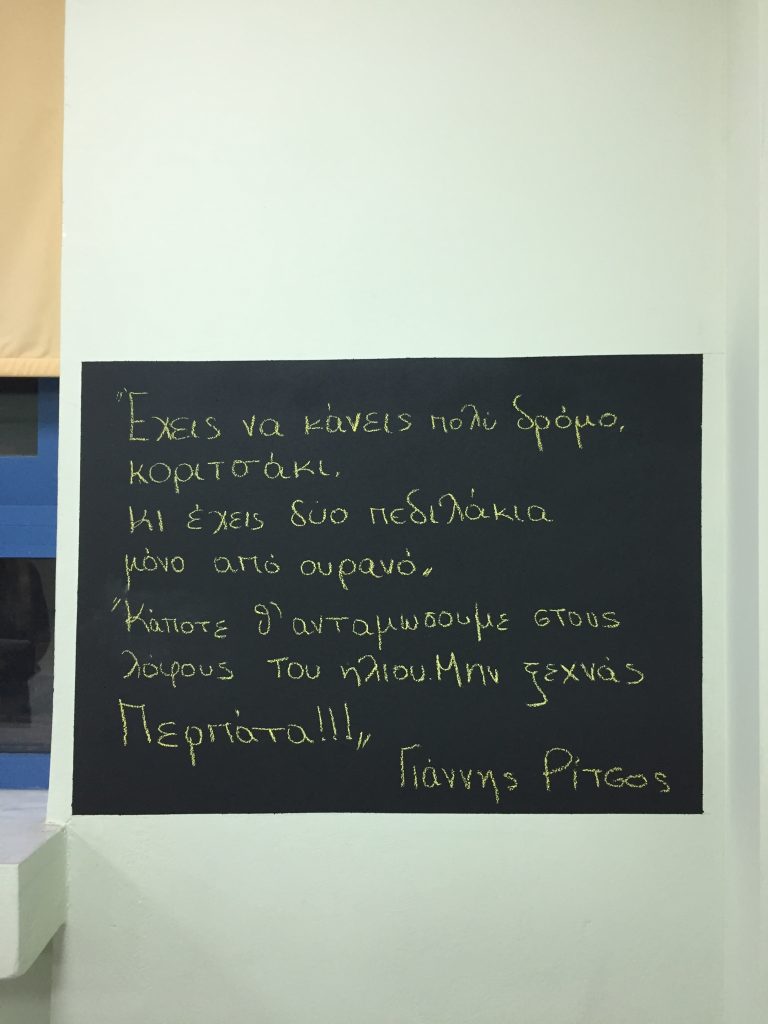 "Έχεις να κάνεις πολύ δρόμο,
κοριτσάκι,
κι έχεις δύο πεδιλάκια
μόνο από ουρανό"
"Κάποτε θ' ανταμώσουμε στους
λόφους του ηλιου. Μην ξεχνάς
Περπάτα!!!"
Γιάννης Ρίτσος